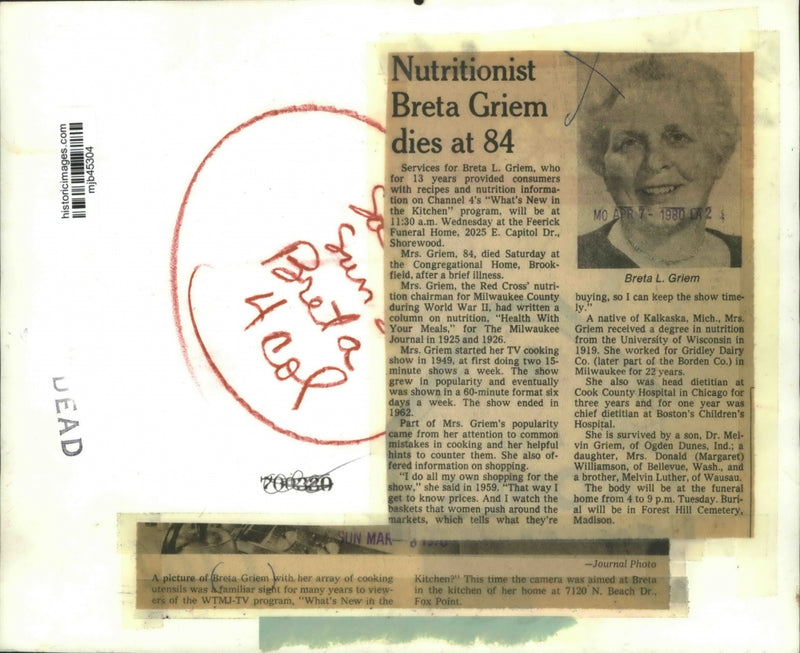 historicimages.com
mjb45304
DEAD
Sun
Breta
4 Col
700380
Nutritionist
Breta Griem
dies at 84
Services for Breta L. Griem, who
for 13 years provided consumers
with recipes and nutrition informa-
tion on Channel 4's "What's New in
the Kitchen" program, will be at
11:30 a.m. Wednesday at the Feerick
Funeral Home, 2025 E. Capitol Dr.,
Shorewood.
Mrs. Griem, 84, died Saturday at
the Congregational Home, Brook-
field, after a brief illness.
Mrs. Griem, the Red Cross' nutri-
tion chairman for Milwaukee County
during World War II, had written a
column on nutrition, "Health With
Your Meals," for The Milwaukee
Journal in 1925 and 1926.
Mrs. Griem started her TV cooking
show in 1949, at first doing two 15-
minute shows a week. The show
grew in popularity and eventually
was shown in a 60-minute format six
days a week. The show ended in
1962.
Part of Mrs. Griem's popularity
came from her attention to common
mistakes in cooking and her helpful
hints to counter them. She also of-
fered information on shopping.
"I do all my own shopping for the
show," she said in 1959. "That way I
get to know prices. And I watch the
baskets that women push around the
markets, which tells what they're
MO APR 7 - 1980 LA 2
Breta L. Griem
buying, so I can keep the show time-
ly."
A native of Kalkaska, Mich., Mrs.
Griem received a degree in nutrition
from the University of Wisconsin in
1919. She worked for Gridley Dairy
Co. (later part of the Borden Co.) in
Milwaukee for 22 years.
She also was head dietitian at
Cook County Hospital in Chicago for
three years and for one year was
chief dietitian at Boston's Children's
Hospital.
She is survived by a son, Dr. Mel-
vin Griem, of Ogden Dunes, Ind.; a
daughter, Mrs. Donald (Margaret)
Williamson, of Bellevue, Wash., and
a brother, Melvin Luther, of Wausau.
The body will be at the funeral
home from 4 to 9 p.m. Tuesday. Buri-
al will be in Forest Hill Cemetery,
Madison.
SUN MAR
—Journal Photo
A picture of Breta Griem with her array of cooking
utensils was a familiar sight for many years to view-
ers of the WTMJ-TV program, "What's New in the
Kitchen?" This time the camera was aimed at Breta
in the kitchen of her home at 7120 N. Beach Dr.,
Fox Point.